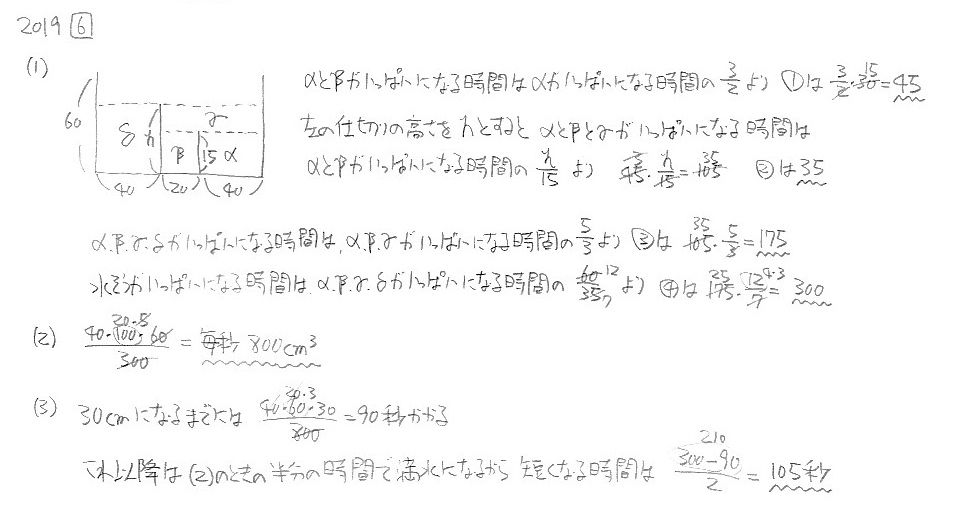 2019 6
(1)
60 δ h β 15 α γ
40 20 40
αとβがいっぱいになる時間はαがいっぱいになる時間の 3/2 より ①は 3/2・30 15 = 45
左の仕切りの高さをhとすると αとβとγがいっぱいになる時間は
αとβがいっぱいになる時間の h/15 より 45 3・h/15 = 105 35 ②は35
α.β.γ.δがいっぱいになる時間は、α.β.γがいっぱいになる時間の 5/3 より ③は 105 35・5/3 = 175
水そうがいっぱいになる時間は、α.β.γ.δがいっぱいになる時間の 60 12/35 7 より ④は 175 25・12/7 = 300
(2) 40・100・60/300 20・5 = 毎秒 800cm³
(3) 30cmになるまでには 40・60・30/800 20・3 = 90秒かかる
これ以降は(2)のときの半分の時間で満水になるから 短くなる時間は 300-90/2 210 = 105秒